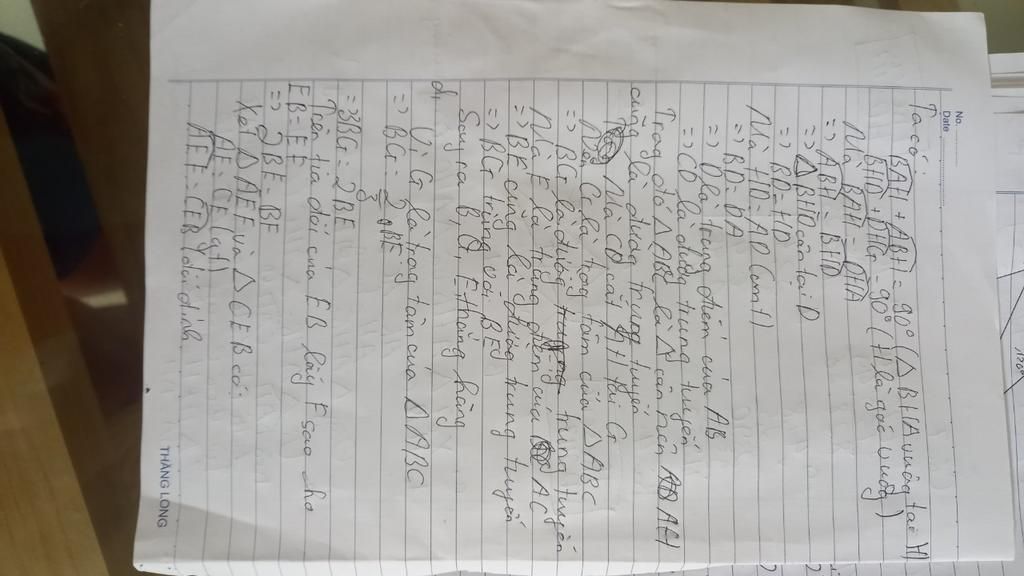 No.
Date
Ta có: BAH + ABH = 90° (Δ BHA vuông tại H)
BHD + DHA = 90° (H là góc vuông)
Mà BAH = DHA
=> ABH = BHD
=> Δ BHD cân tại D
=> BD = HD
Mà HD = AD (cmt)
=> BD = DA
=> D là trung điểm của AB
=> CD là đường trung tuyến
Trong đó Δ ABC là Δ cân nên AH
cũng là đường trung tuyến
Mà CD cắt AH tại G
G là trọng tâm của Δ ABC
=> BG là đường trung tuyến
Mà E là trung điểm của AC
=> BE cũng là đường trung tuyến
=> BG trùng với BE
Suy ra B, G, E thẳng hàng
d,
Vì G là trọng tâm của Δ ABC
=> BG = 2 BE
3
=> 3BG = 2BE
Trên tia đối của EB lấy F sao cho
EB = EF
=> 2BE = BF
Xét Δ AEF và Δ CEB có:
AE = CE (gt)
AEF = CEB (đối đỉnh
THANG LONG